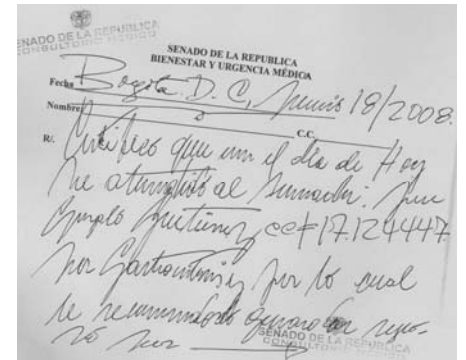 SENADO DE LA REPUBLICA
CONSULTORIO MEDICO
SENADO DE LA REPUBLICA
BIENESTAR Y URGENCIA MÉDICA
Fecha Bogotá D. C, Junio 18/2008.
Nombre:
C.C.
R/. Certifico que en el día de Hoy
he atendido al Senador: 
Gutierrez cc# 17.124447
por Gastroenteritis por lo cual
le recomendado guardar repo-
so por
SENADO DE LA REPUBLICA
CONSULTORIO MEDICO